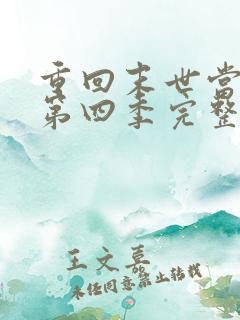 重回末世当
第四季完整
王文慕
未经同意禁止转载